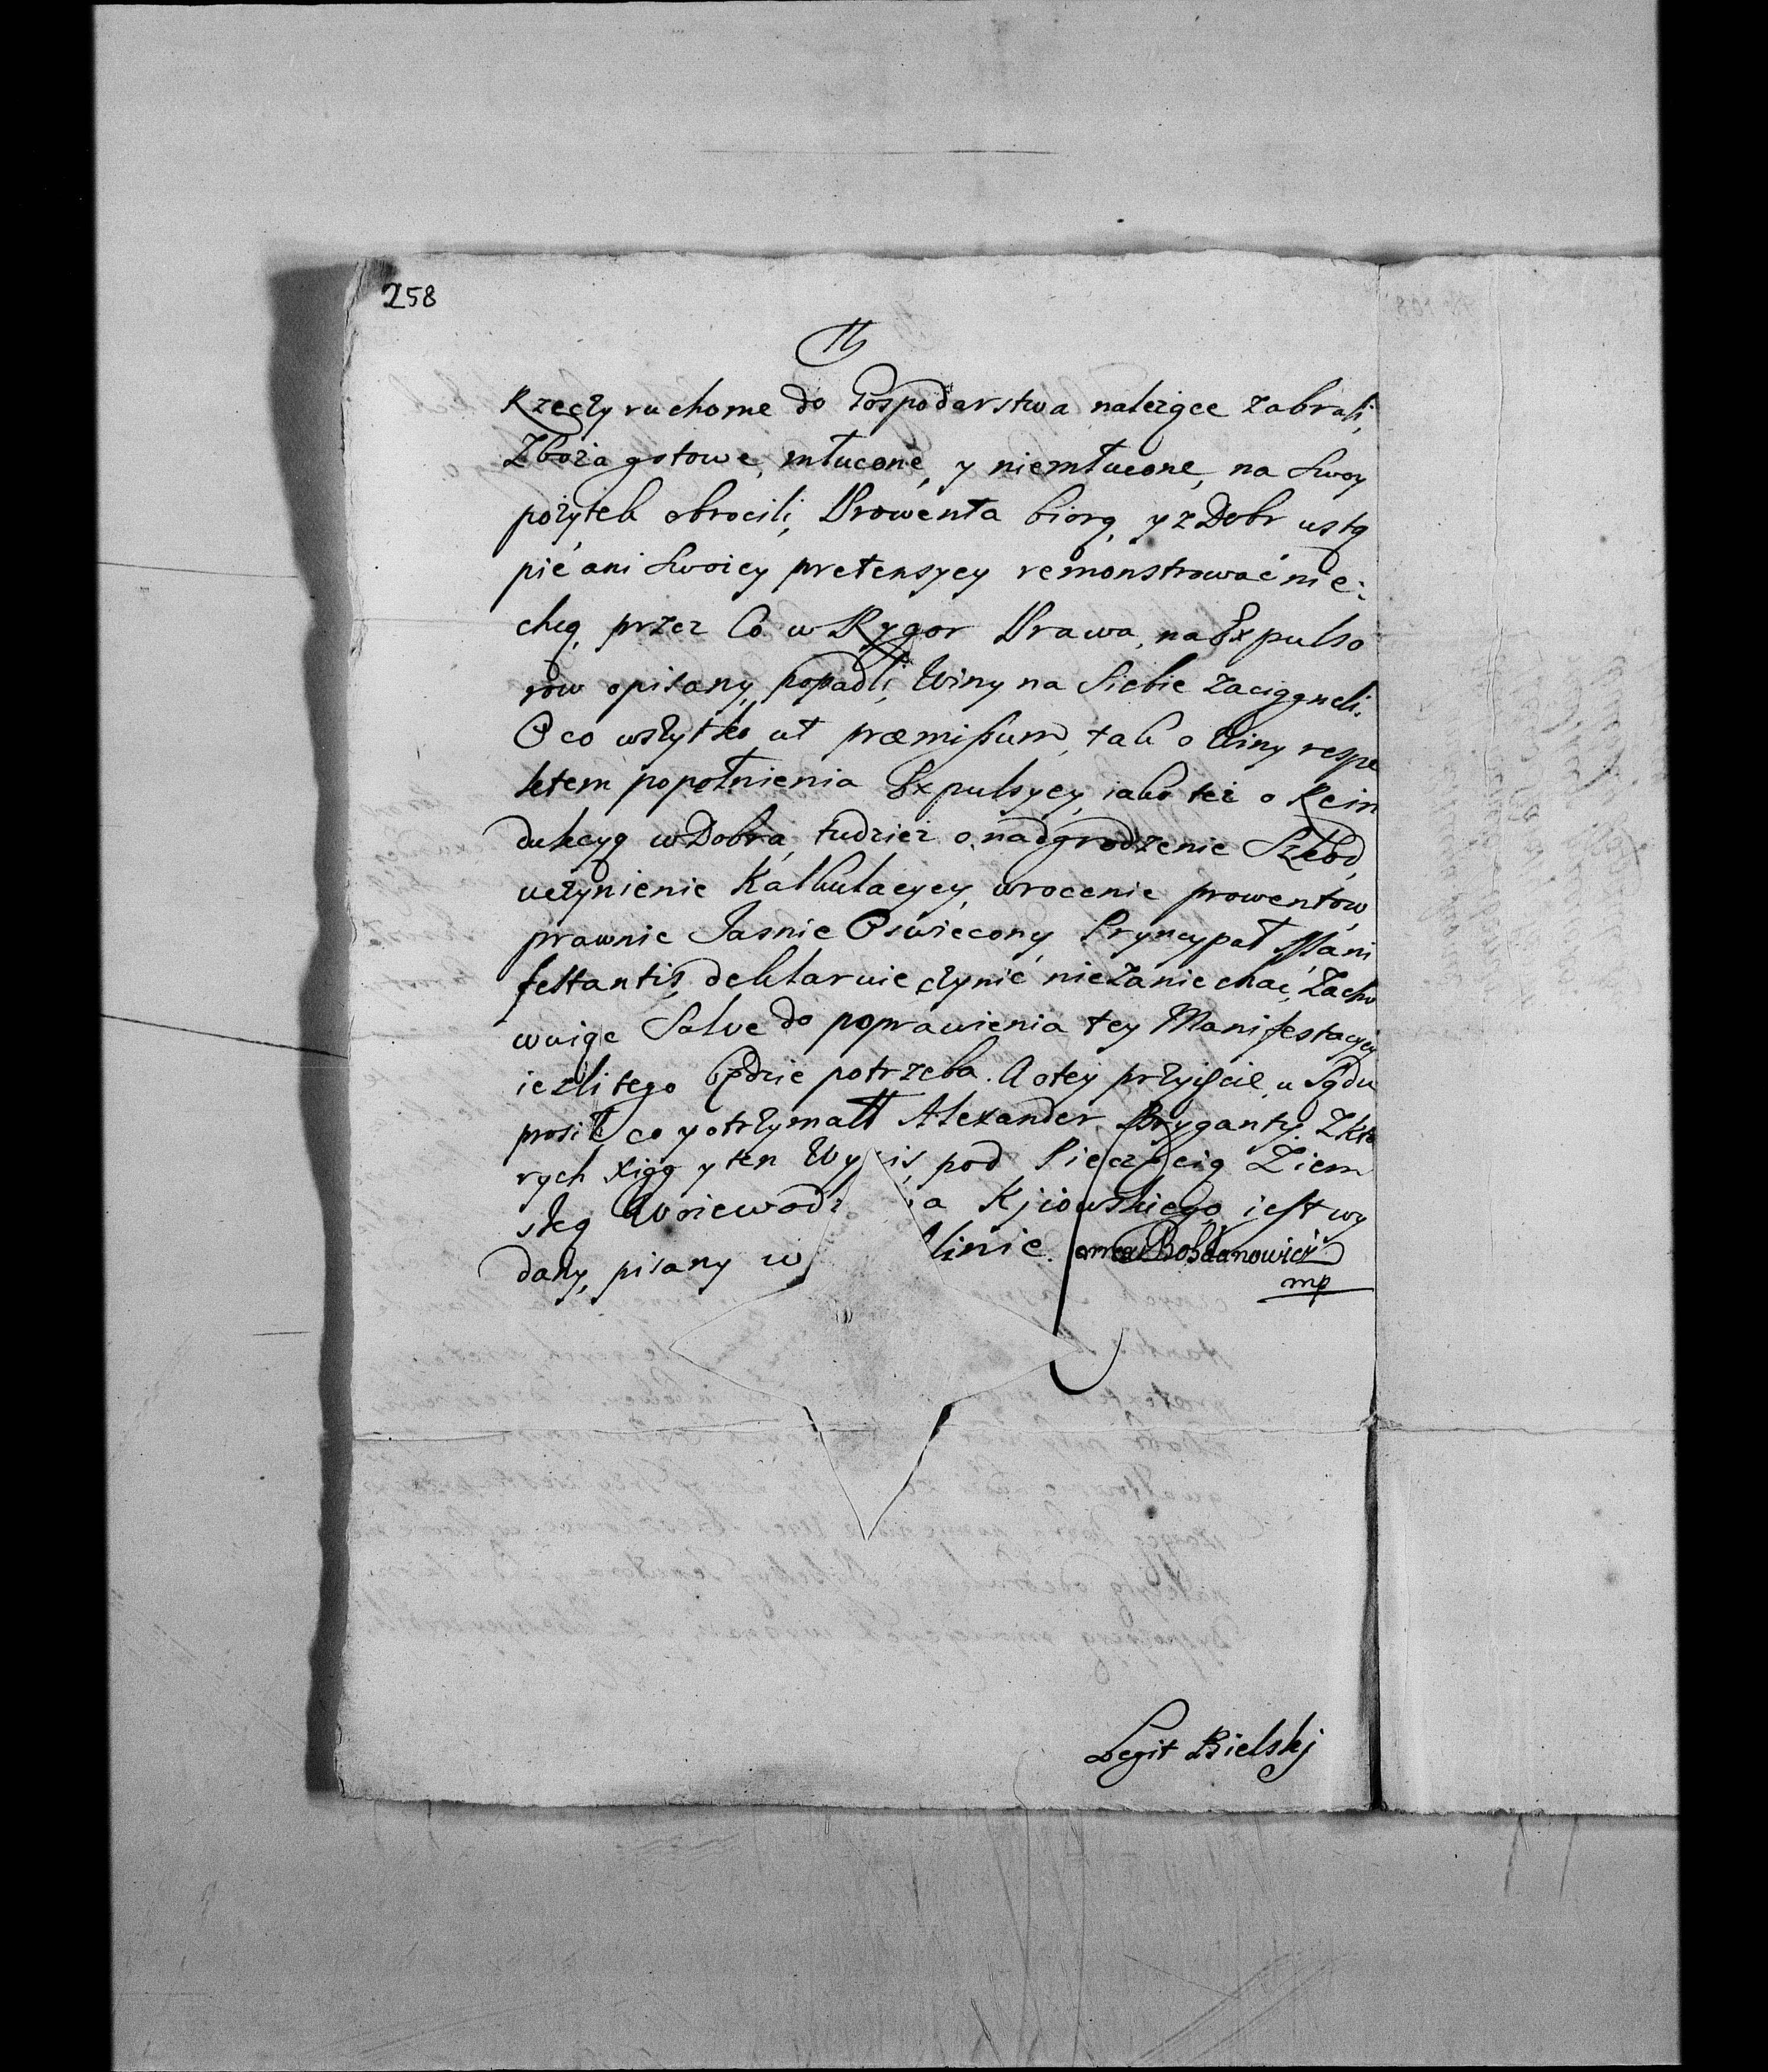 258
Rzeczy ruchome do Gospodarstwa należące zabrali,
Zboża gotowe, młucone, y niemłucone, na Swoy
pożytek obrocili, Prowenta biorą, y z Dobr ustą
pić ani Swoiey pretensyey remonstrować nie:
chcą, przez Co w Rygor Prawa, na Expulso
row opisany, popadli, Winy na Siebie zaciągneli.
O co wszytko ut præmissum, tak o Winy respe
ktem popołnienia Expulsyey, iako też o Rein
dukcyą w Dobra, tudzież o nadgrodzenie Szkod,
uczynienie Kalkulacyey, wrocenie prowentow
prawnie Jasnie Oświecony Pryncypał Mani
festantis, deklaruie czynić, niezaniechać, Zacho
wuiąc Salvę do poprawienia tey Manifestacyey
ieżli tego będzie potrzeba. A otej przyięcie u Sądu
prosił, co y otrzymałł Alexander Bryganty. Z kto
rych Xiąg y ten Wy is, pod Pieczęcią Ziem
ską Woiewodz a Kjiowskiego iest wy
dany, pisany w linie. Bohdanowicz
mp
Legit Bielskj